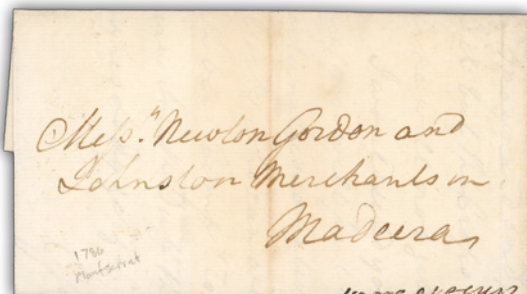 Mess.rs Newton Gordon and
Johnston Merchants in
Madeira
1786
Montserrat